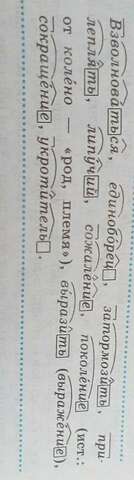 Взволноваться, единоборец, затормозить, при-
леплять, липучий, сожаление, поколение (ист.:
от колено — «род, племя»), выразить (выражение),
сокращение, укротитель.